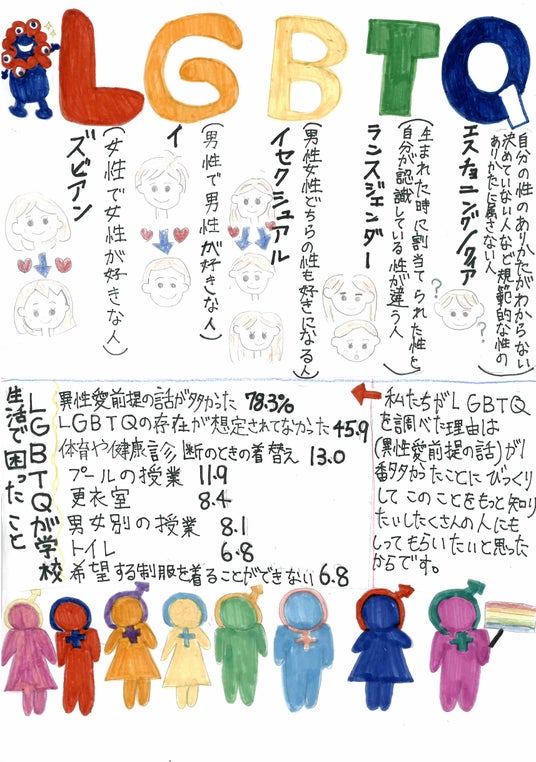 LGBTQ
ズビアン
(女性で女性が好きな人)
イ
(男性で男性が好きな人)
イセクシュアル
(男性女性どちらの性も好きになる人)
ランスジェンダー
(生まれた時に割当てられた性と
自分が認識している性が違う人)
エスチョニング/クィア
(自分の性のありかたがわからない
決めていない人など規範的な性の
ありかたに属さない人)
?
?
LGBTQが学校
生活で困ったこと
異性愛前提の話が多かった 78.3%
LGBTQの存在が想定されてなかった 45.9
体育や健康診断のときの着替え 13.0
プールの授業 11.9
更衣室 8.4
男女別の授業 8.1
トイレ 6.8
希望する制服を着ることができない 6.8
私たちがLGBTQ
を調べた理由は
(異性愛前提の話)が1
番多かったことにびっくり
して このことをもっと知り
たいしたくさんの人にも
しってもらいたいと思った
からです。